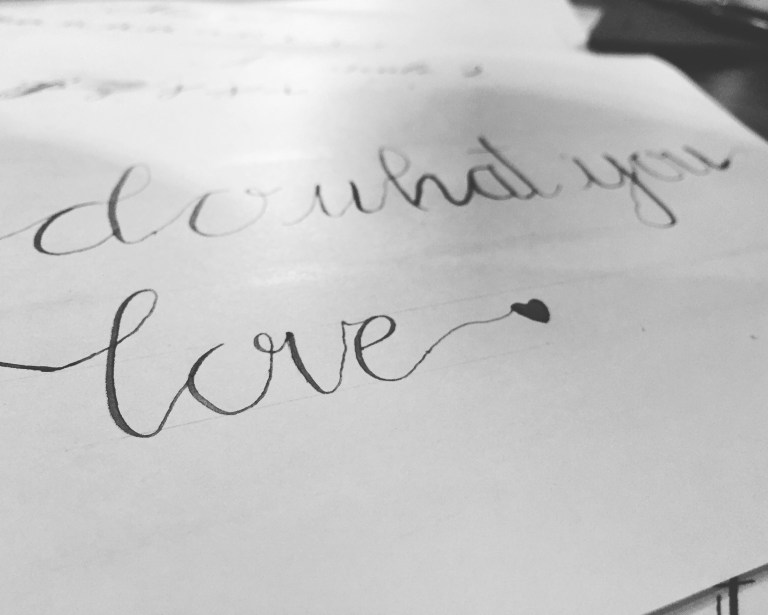 do what you
love